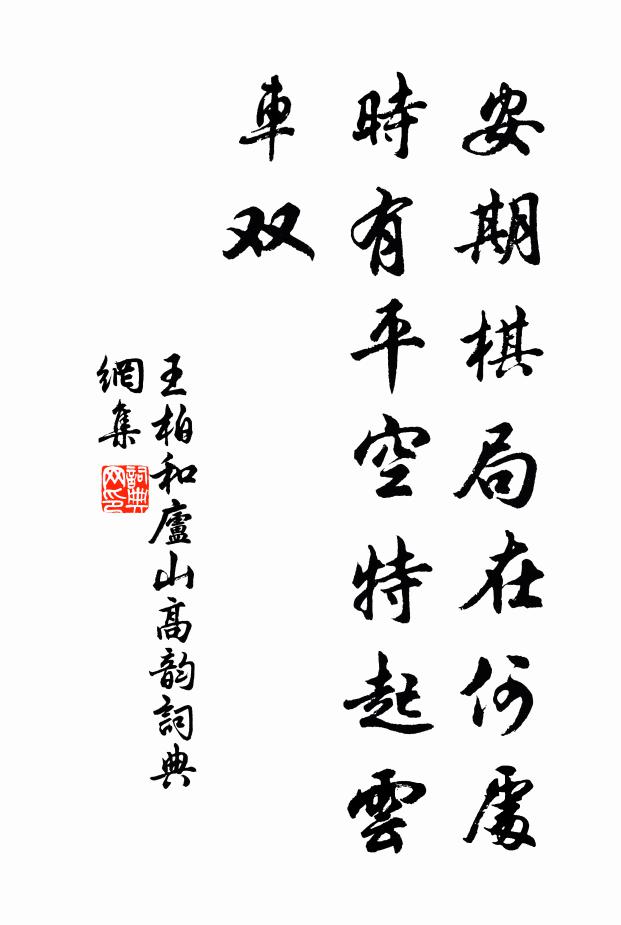 安期棋局在何處
時有平空特起雲
車双
王柏和廬山高韵詞典
網集
詞典网印